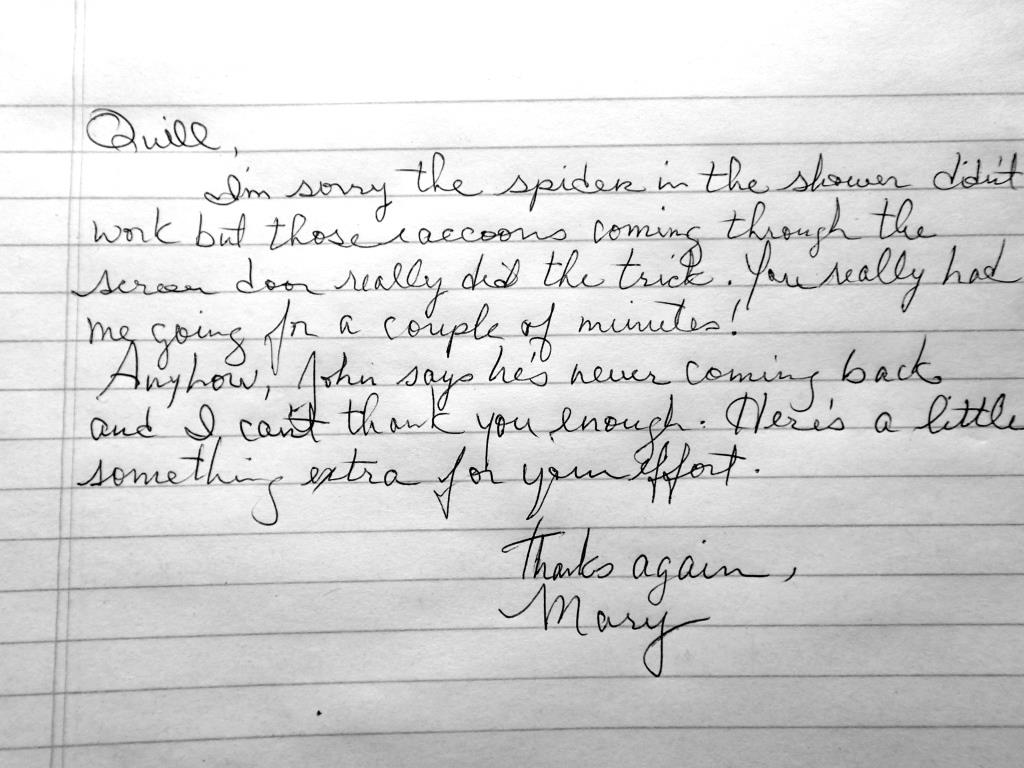 Quill,
I'm sorry the spider in the shower didn't
work but those raccoons coming through the
screen door really did the trick. You really had
me going for a couple of minutes!
Anyhow, John says he's never coming back
and I can't thank you enough. Here's a little
something extra for your effort.
Thanks again,
Mary